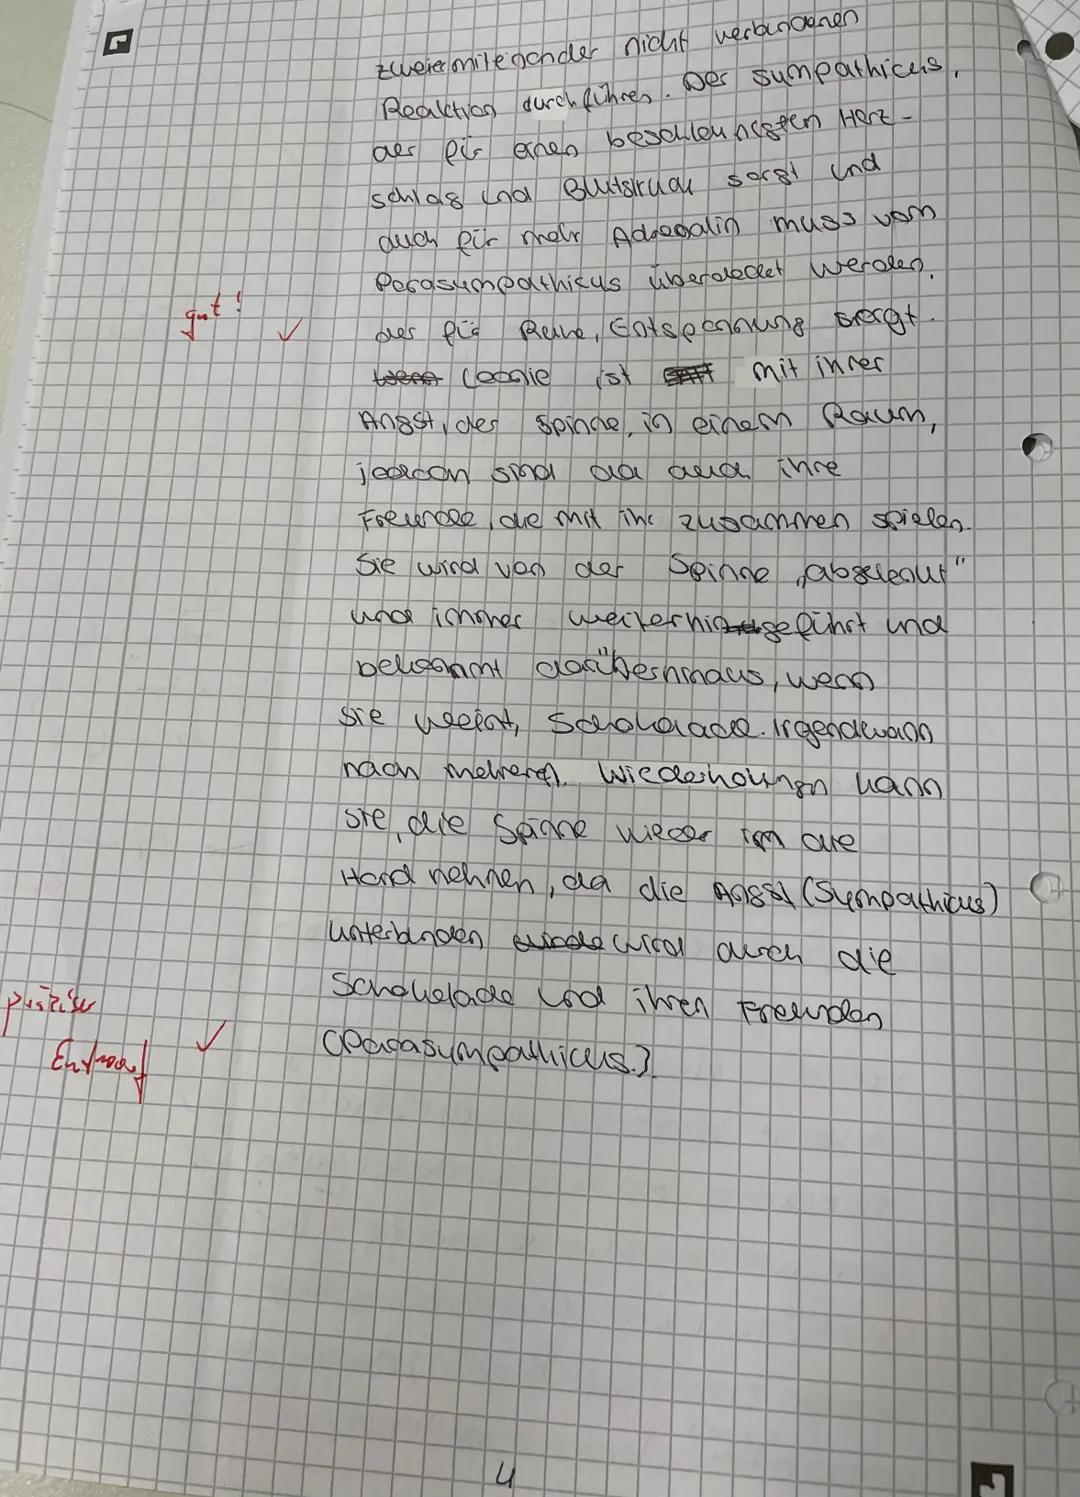 zweier miteinander nicht verbundenen
Reaktion durchführen. Der Sympathicus,
der für einen beschleunigten Herz-
schlag und Blutdruck sorgt und
auch für mehr Adrenalin muss vom
Parasympathicus überdeckt werden,
gut! der für Ruhe, Entspannung sorgt.
ist mit ihrer
Angst, der Spinne, in einem Raum,
jedoch sind da auch ihre
Freunde, die mit ihr zusammen spielen.
Sie wird von der Spinne „abgelenkt"
und immer weiterhin geführt und
bekommt darüberhinaus, wenn
sie weint, Schokolade. Irgendwann
nach mehreren Wiederholungen kann
sie, die Spinne wieder in die
Hand nehmen, da die Angst (Sympathicus)
unterbunden wird durch die
Schokolade und ihren Freunden
präziser
Entwurf (Parasympathicus.).
4